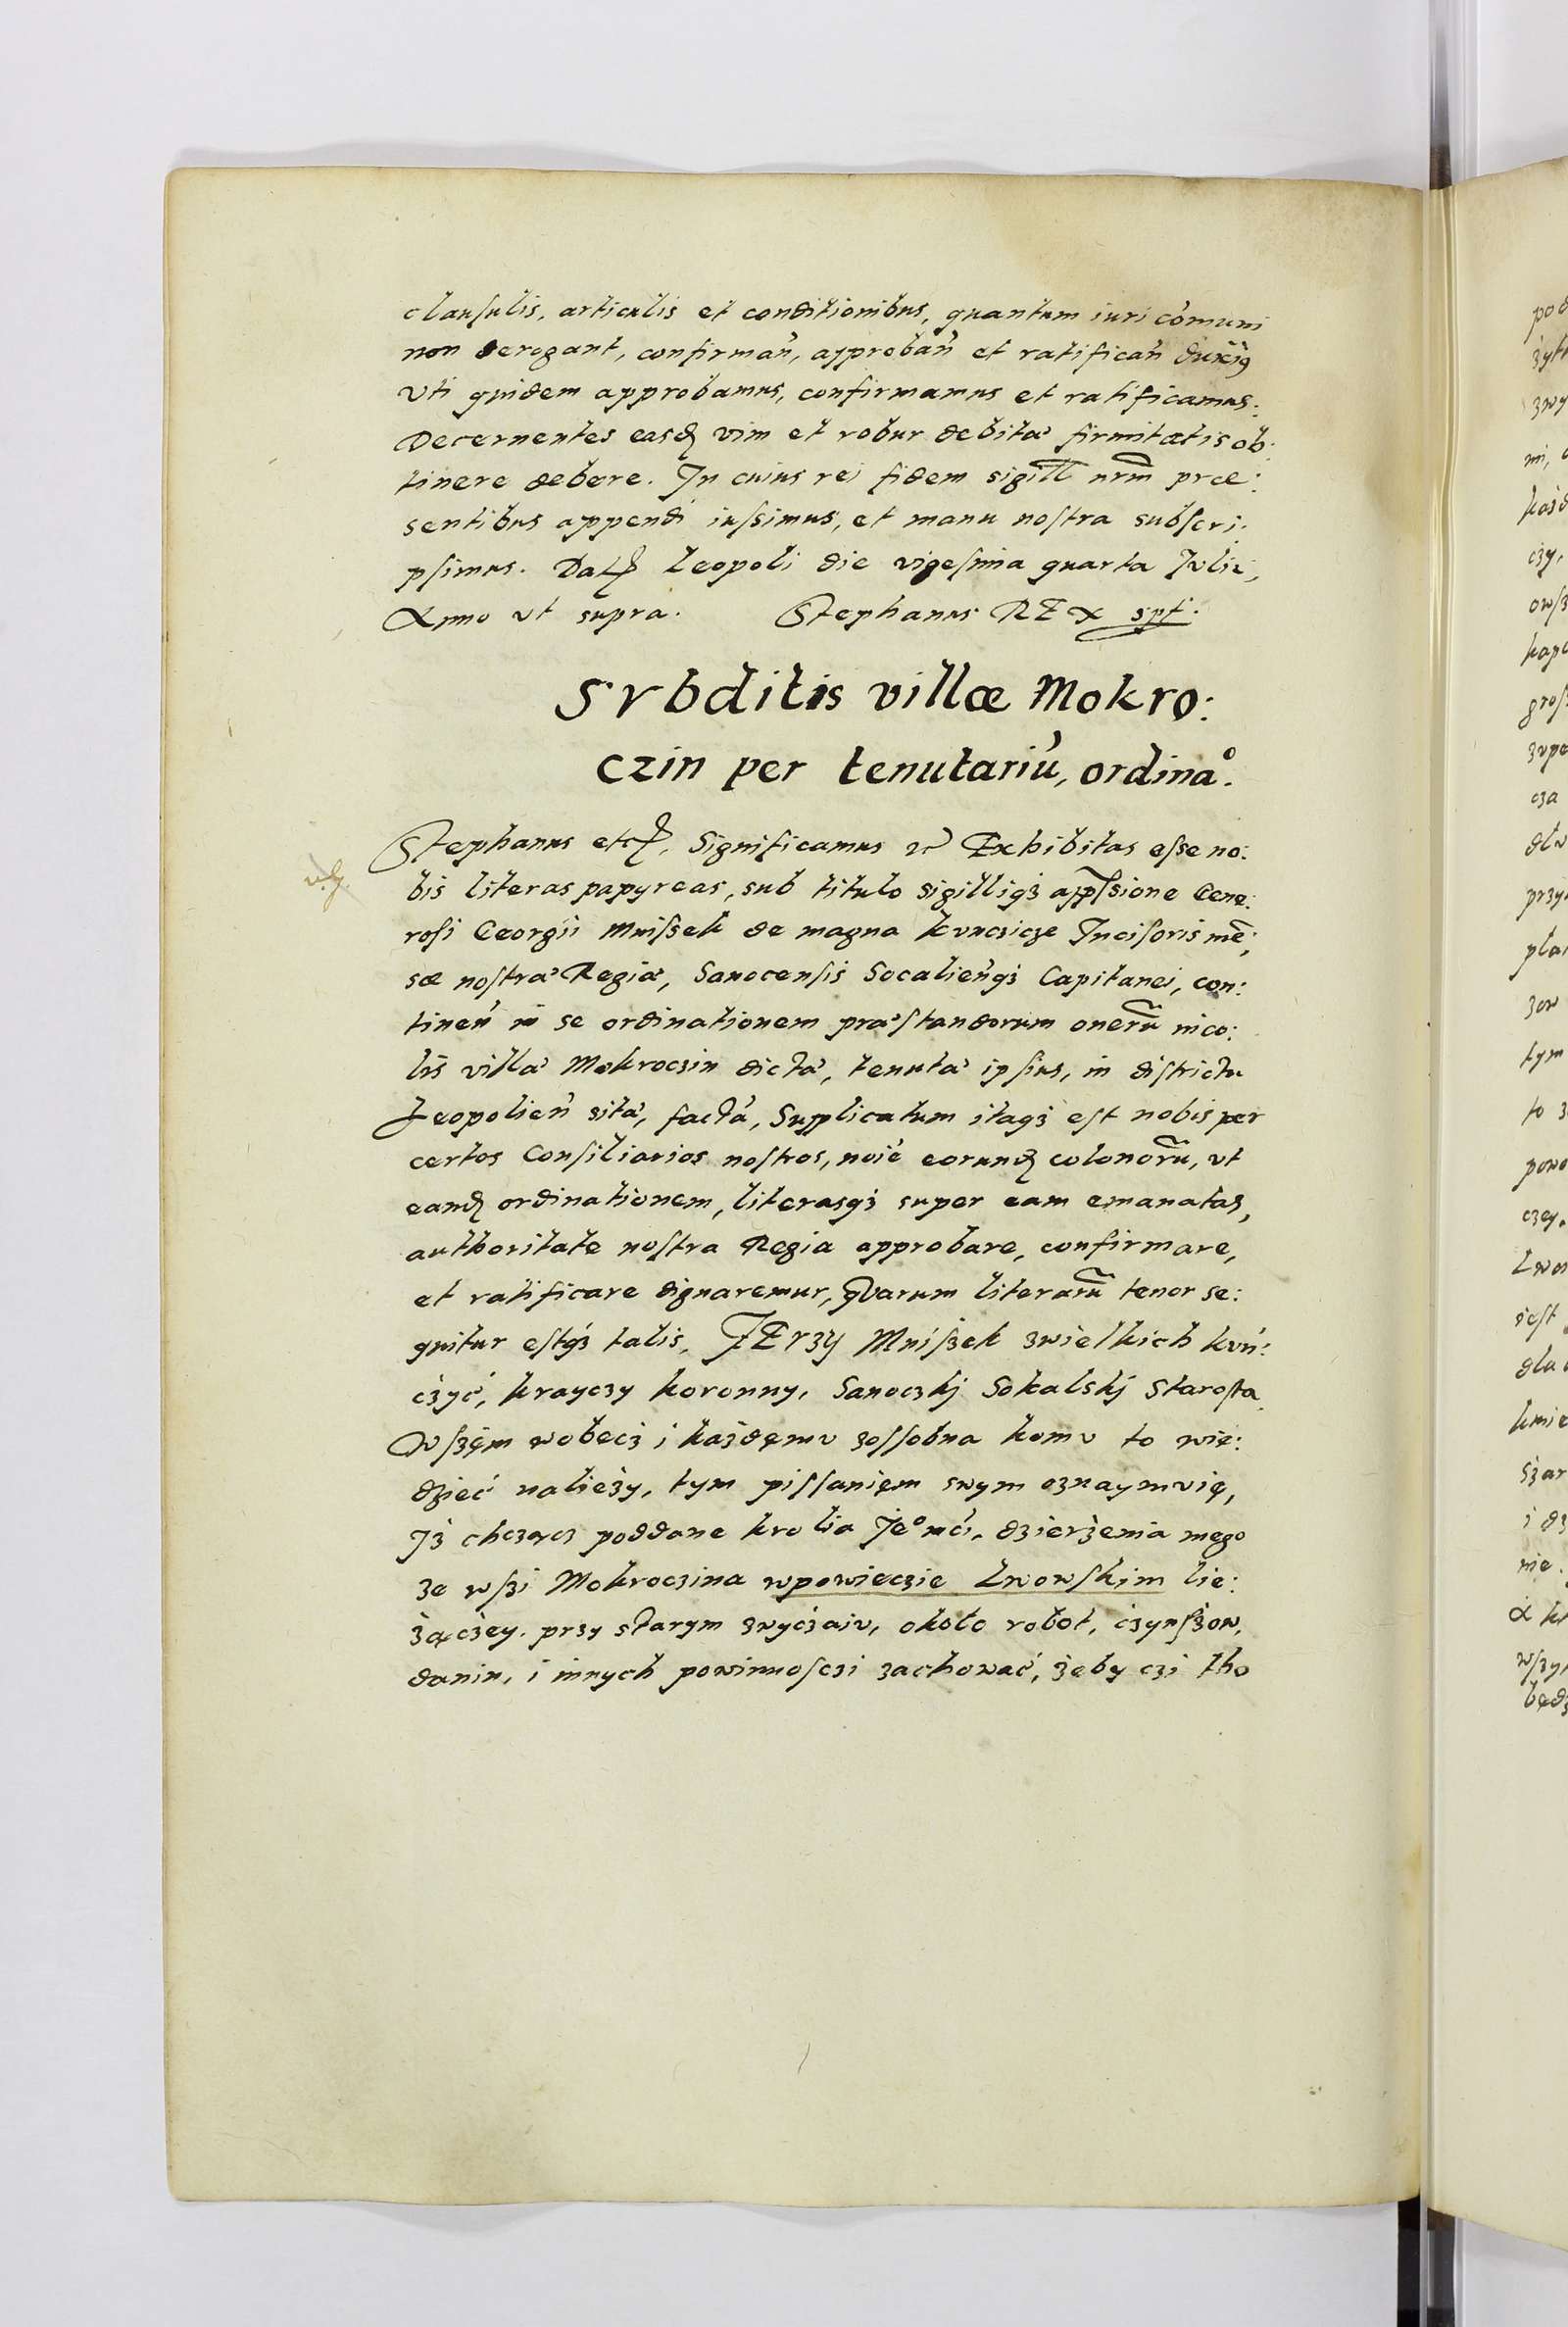 clausulis, articulis et conditionibus, quantum iuri cõmuni
non derogant, confirmañ, approbañ et ratificañ duxi9
Vti quidem approbamus, confirmamus et ratificamus:
Decernentes easdę vim et robur debitæ firmitatis ob:
tinere debere. In cuius rei fidem sigill nrm̃ præ:
sentibus appendi iussimus, et manu nostra subscri:
psimus. Datę Leopoli die vigesima quarta Julii,
Anno vt supra. Stephanus REX spt.
Svbditis villæ Mokro:
czin per tenutariũ, ordina°.
Stephanus etcę. Significamus Exhibitas esse no:
bis literas papyreas, sub titulo sigilliq3 app̃ssione Gene:
rosi Georgii Mnissek de magna kvncicze Incisoris mẽ:
sæ nostræ Regiæ, Sanocensis Socalieñq3 Capitanei, con:
tineñ in se ordinationem præstandorum onerũ inco:
lis villæ Mokroczin dictæ, tenutæ ipsius, in districtu
Leopolieñ sitæ, factã, Supplicatum itaq3 est nobis per
certos Consiliarios nostros, noiẽ eorundę colonorũ, vt
eandę ordinationem, literasq3 super eam emanatas,
authoritate nostra Regia approbare, confirmare,
et ratificare dignaremur, qVarum literarũ tenor se:
quitur estq3 talis. JErzy Mniszek zwielkich kvń:
czyć, krayczy koronny, Sanoczkj Sokalskj Starosta
Wszęm wobecz i każdęmv zossobna komv to wie:
dzieć należy, tym pissanięm swym oznaymvię,
Iż chcząncz poddane krolia Je°mći, dzierżenia mego
ze wszi Mokroczina wpowieczie Lwowskim lie:
żączey. przy starym zwyczaiv, około robot, czynszow,
danin, i innych powinnosczi zachować, żeby czi tho